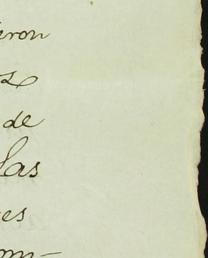 eron
de
las
es
om-